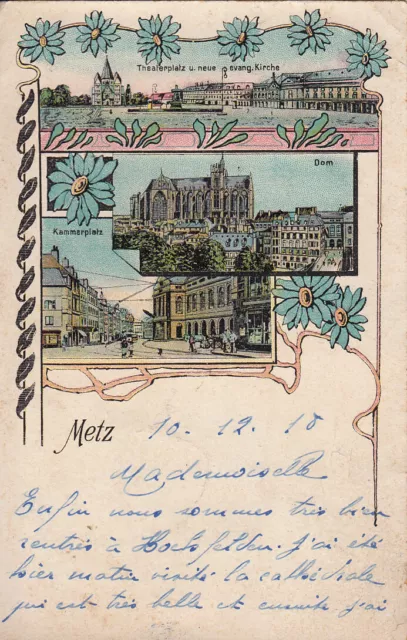 Theaterplatz u. neue evang. Kirche
Dom
Kammerplatz
Metz
10 - 12 - 18
Mademoiselle
Enfin nous sommes très bien
rentrés à Hochfelden. J'ai été
hier matin visité la cathédrale
qui est très belle et ensuite j'ai